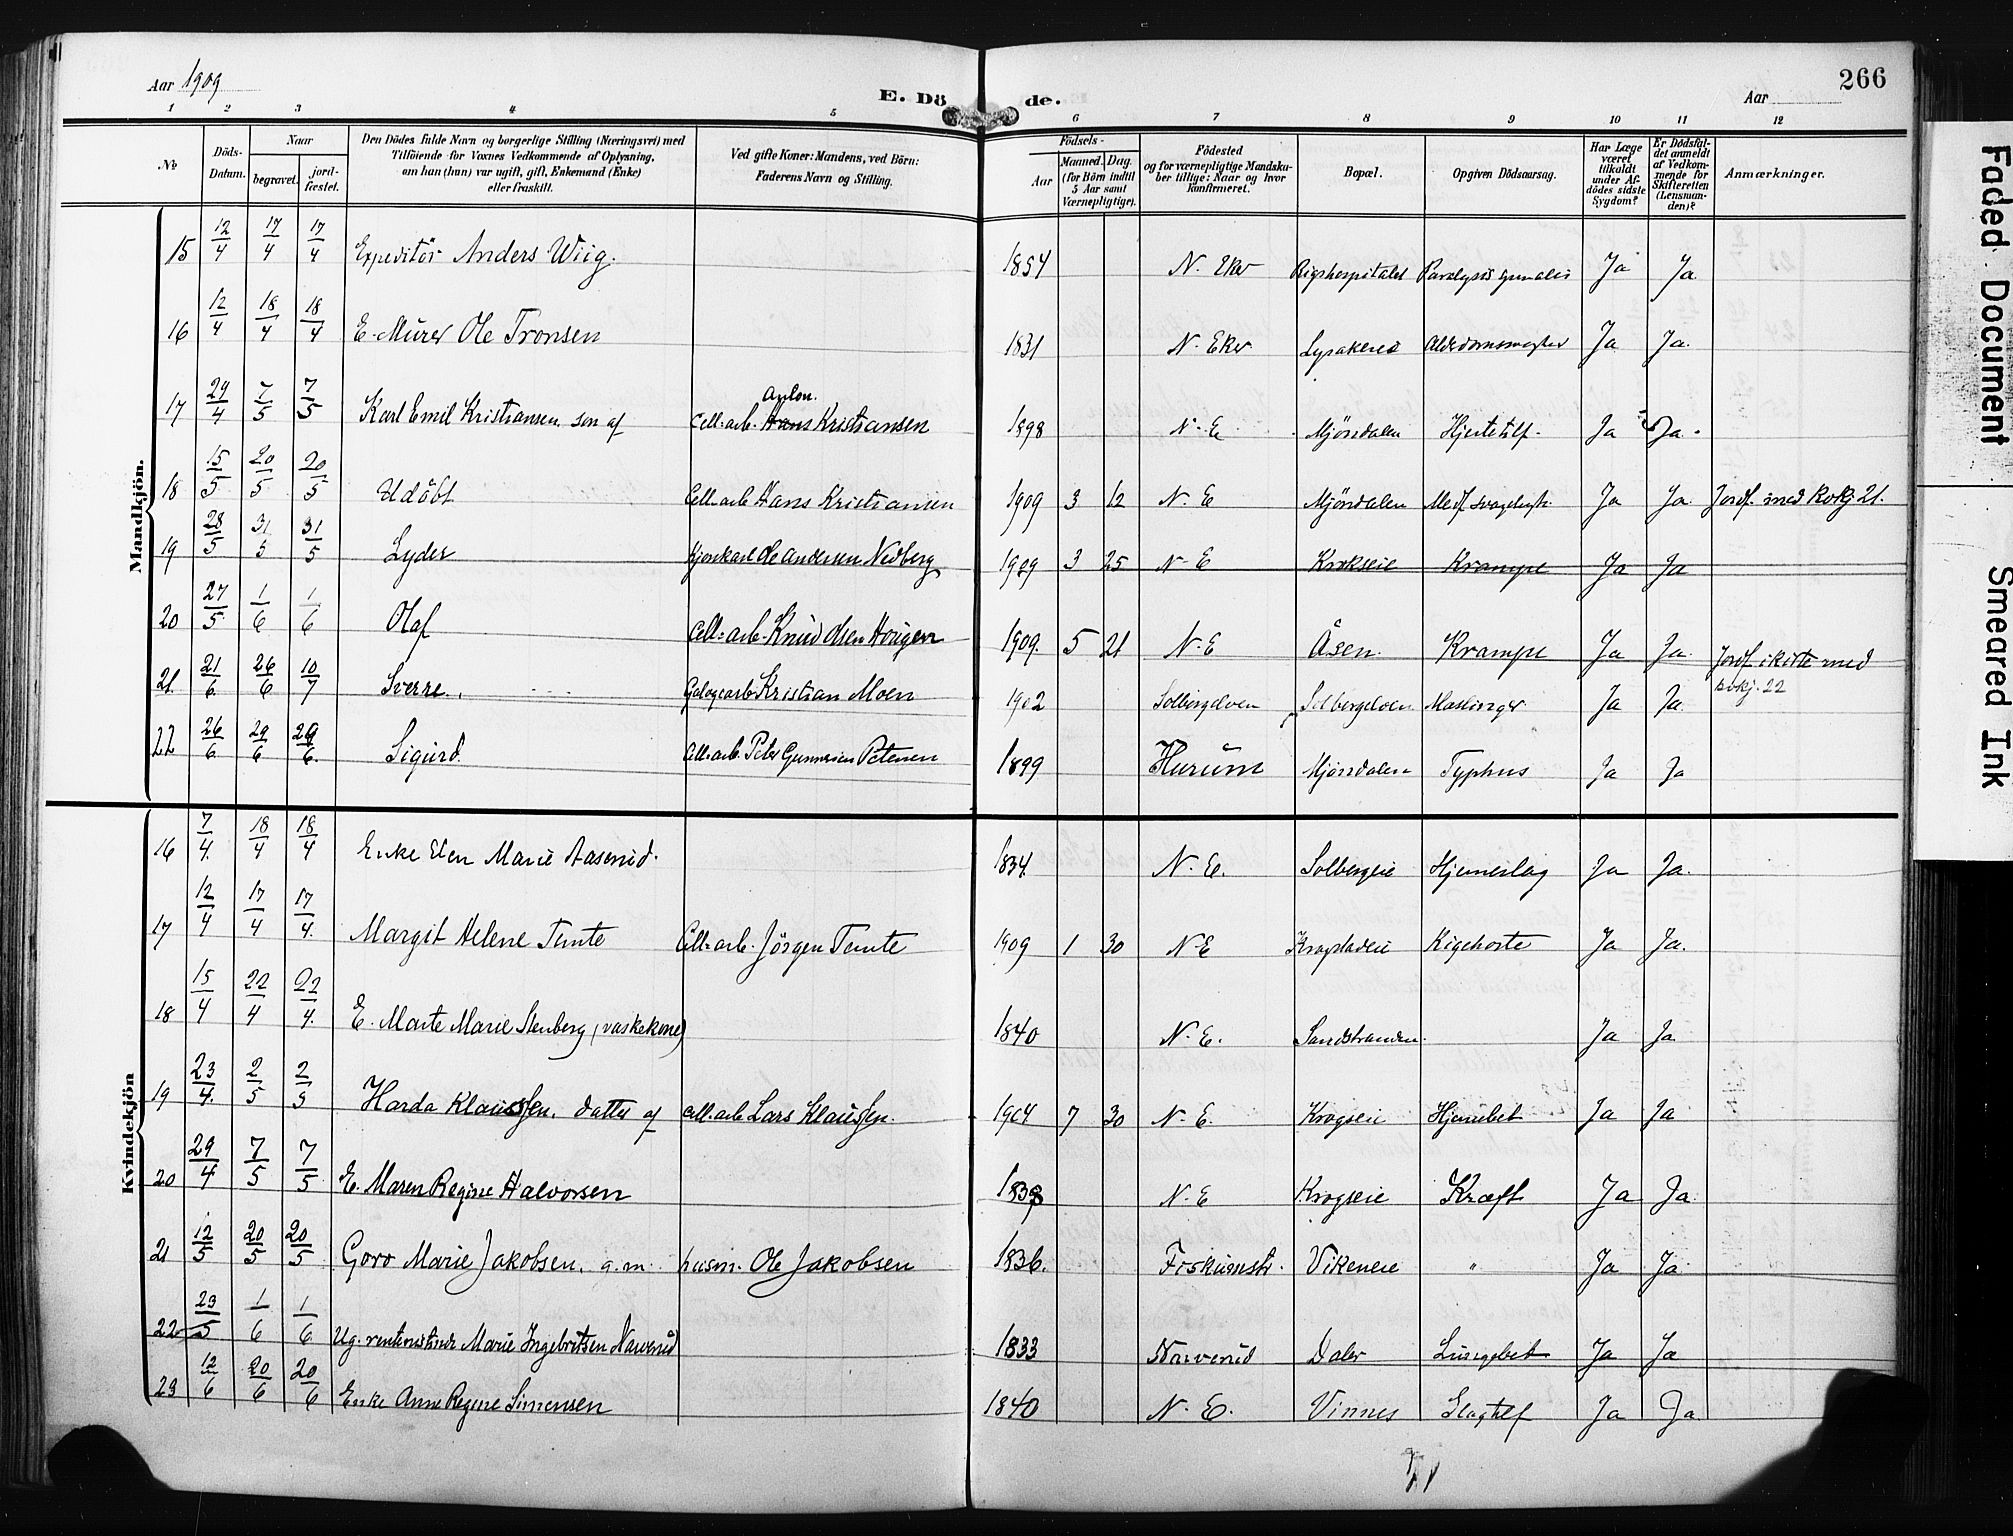 Aar 1909
E. Döde.
Aar
266
1 2 3 4 5 6 7 8 9 10 11 12
No
Döds-Datum.
Naar
begravet.
jord-fæstet.
Den Dödes fulde Navn og borgerlige Stilling (Næringsvei) med
Tilföiende for Voxnes Vedkommende af Oplysning,
om han (hun) var ugift, gift, Enkemand (Enke)
eller fraskilt.
Ved gifte Koner: Mandens, ved Börn:
Faderens Navn og Stilling.
Födsels-
Aar
Maaned. Dag.
(for Börn indtil
5 Aar samt
Værnepligtige).
Födested
og for værnepligtige Mandska-
ber tillige: Naar og hvor
konfirmeret.
Bopæl.
Opgiven Dödsaarsag.
Har Læge
været
tilkaldt
under Af-
dödes sidste
Sygdom?
Er Dödsfal-
det anmeldt
af Vedkom-
mende for
Skifteretten
(Lensman-
den)?
Anmærkninger.
Mandkjön.
15 12/4 17/4 17/4 Expeditör Anders Wiig. 1854 N. Eker Rigshospitalet Paralysis spinalis Ja Ja
16 12/4 18/4 18/4 E. Murer Ole Tronsen 1831 N. Eker Lysakereie Ja Ja.
17 24/4 7/5 7/5 Karl Emil Kristiansen, søn af Cell.arb. Hans Anton. Kristiansen 1898 N. E. Mjöndalen Hjertetilf. Ja Ja.
18 15/5 20/5 20/5 Udöbt Cell.arb. Hans Kristiansen 1909 3 12 N. E Mjöndalen Medf. svagelighed Ja Ja Jordf. med Kvkj. 21.
19 28/5 31/5 31/5 Lyder Ole Andersen Nedberg 1909 3 25 N. E Krokseie Krampe Ja Ja
20 27/5 1/6 1/6 Olaf Cell.arb. Knud Olsen Hougen 1909. 5 21 N. E Åsen. Krampe Ja Ja.
21. 21/6 26/6 10/7 Sverre. Kristian Moen 1902 Solbergelven Solbergelven Meslinger Ja Ja. Jordf. i kiste med Kvkj. 22
22 26/6 29/6 29/6. Sigurd. Cell.arb. Peder Gunnersen Petersen 1899 Hurum Mjöndalen Typhus Ja Ja
Kvindekjön
16 7/4. 18/4 18/4 Enke Elen Marie Aaserud. 1834. N. E. Solbergeie Hjerneslag Ja Ja.
17 12/4 17/4 17/4. Margit Helene Temte Cell.arb. Jörgen Temte 1909 1 30 N. E Krogstadeie Kigehoste Ja Ja.
18 15/4 22/4 22/4. E. Marte Marie Stenberg (vaskekone) 1840 N. E. Sandstranden. Ja Ja
19 23/4. 2/5 2/5 Harda Klaussen, datter af cell.arb. Lars Klaussen. 1904 7 30 N. E. Krogseie Hjernebet. Ja Ja
20 29/4 7/5 7/5 E. Maren Regine Halvorsen N. E Krogseie Kræft Ja Ja.
21 12/5 20/5 20/5. Goro Marie Jakobsen. g.m. husm. Ole Jakobsen 1836. Fiskumstr. Vikeneie " Ja Ja.
22 23/5 1/6 1/6 Ug. rentenistinde Marie Ingebretsen Narverud 1833 Narverud Daler Lungebet. Ja Ja
23 12/6 20/6 20/6 Enke Anne Regine Simensen 1840 N. E. Vinnes Slagtilf Ja Ja.
Faded Document
Smeared Ink